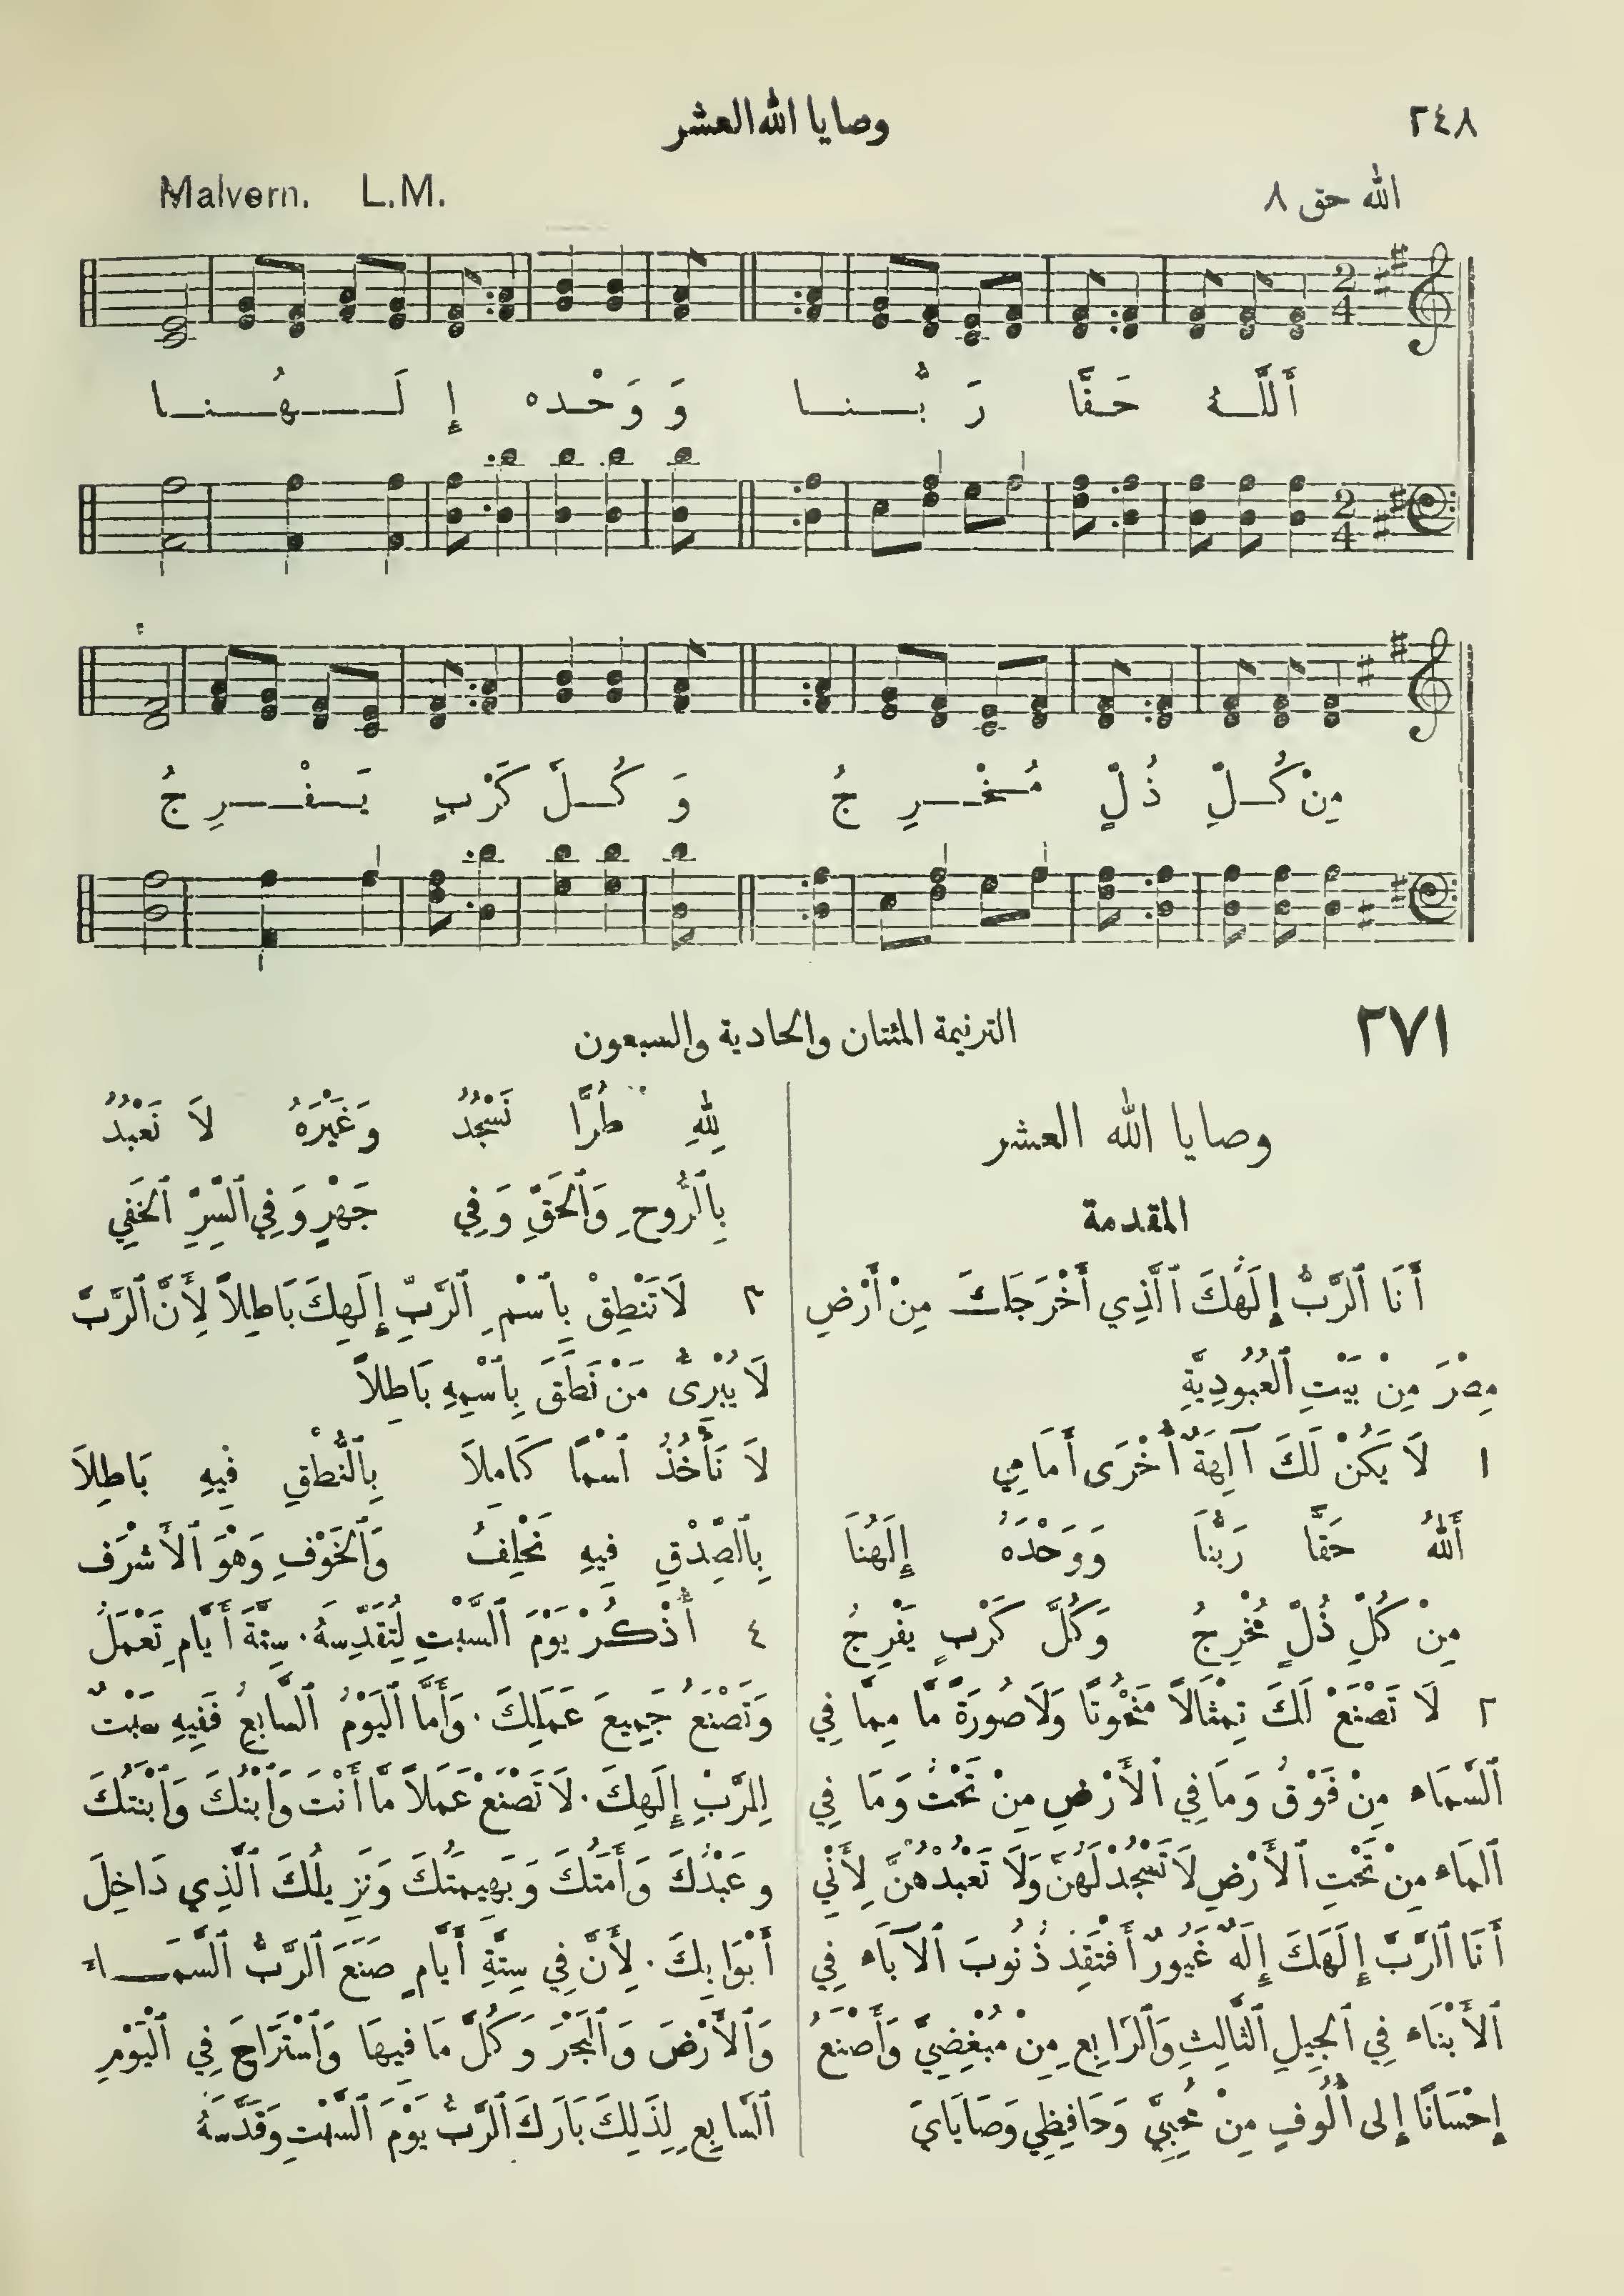 ٢٤٨
وصايا الله العشر
الله حق ٨
Malvern. L.M.
أَللّٰـهُ حَـقًّا رَ بُّـنـا وَ وَحْـدهُ إِ لَـهُـنـا
مِنْ كُـلِّ ذُلٍّ مُـخْـرِجُ وَ كُـلَّ كَرْبٍ يَـفْـرِجُ
٢٧١
الترنيمة المئتان والحادية والسبعون
وصايا الله العشر
المقدمة
أَنَا ٱلرَّبُّ إِلٰهُكَ ٱلَّذِي أَخْرَجَكَ مِنْ أَرْضِ
مِصْرَ مِنْ بَيْتِ ٱلْعُبُودِيَّةِ
١ لاَ يَكُنْ لَكَ آلِهَةٌ أُخْرَى أَمَامِي
أَللهُ حَقًّا رَبُّنَا وَوَحْدَهُ إِلَهُنَا
مِنْ كُلِّ ذُلٍّ مُخْرِجُ وَكُلَّ كَرْبٍ يَفْرِجُ
٢ لاَ تَصْنَعْ لَكَ تِمْثَالاً مَنْحُوتًا وَلاَ صُورَةً مَّا مِمَّا فِي
ٱلسَّمَاء مِنْ فَوْقُ وَمَا فِي ٱلأَرْضِ مِنْ تَحْتُ وَمَا فِي
ٱلمَاء مِنْ تَحْتِ ٱلأَرْضِ لاَ تَسْجُدْ لَهُنَّ وَلاَ تَعْبُدْهُنَّ لِأَنِّي
أَنَا ٱلرَّبَّ إِلَهَكَ إِلَهٌ غَيُورٌ أَفْتَقِدُ ذُنُوبَ ٱلآبَاء فِي
ٱلأَبْنَاء فِي ٱلجِيلِ ٱلثَّالِثِ وَٱلرَّابِعِ مِنْ مُبْغِضِيَّ وَأَصْنَعُ
إِحْسَانًا إِلى أُلُوفٍ مِنْ مُحِبِّيَّ وَحَافِظِي وَصَايَايَ
لِلّهِ طُرًّا نَسْجُدُ وَغَيْرَهُ لاَ نَعْبُدُ
بِٱلرُّوحِ وَٱلحَقِّ وَفِي جَهْرٍ وَفِي ٱلسِّرِّ ٱلخَفِي
٣ لاَ تَنْطِقْ بِٱسْمِ ٱلرَّبِّ إِلَهِكَ بَاطِلاً لِأَنَّ ٱلرَّبَّ
لاَ يُبْرِئُ مَنْ نَطَقَ بِٱسْمِهِ بَاطِلاً
لاَ نَأْخُذُ ٱسْمًا كَامِلاَ بِٱلنُّطْقِ فِيهِ بَاطِلاَ
بِٱلصِّدْقِ فِيهِ نَحْلِفُ وَٱلخَوْفِ وَهْوَ ٱلأَشْرَف
٤ أُذْكُرْ يَوْمَ ٱلسَّبْتِ لِتُقَدِّسَهُ. سِتَّةَ أَيَّامٍ تَعْمَلُ
وَتَصْنَعُ جَمِيعَ عَمَلِكَ. وَأَمَّا ٱليَوْمُ ٱلسَّابِعُ فَفِيهِ سَبْتٌ
لِلرَّبِّ إِلَهِكَ. لاَ تَصْنَعْ عَمَلاً مَّا أَنْتَ وَٱبْنُكَ وَٱبْنَتُكَ
وعَبْدُكَ وَأَمَتُكَ وَبَهِيمَتُكَ وَنَزِيلُكَ ٱلَّذِي دَاخِلَ
أَبْوَابِكَ. لِأَنَّ فِي سِتَّةِ أَيَّامٍ صَنَعَ ٱلرَّبُّ ٱلسَّمَـاء
وَٱلأَرْضَ وَٱلبَحْرَ وَكُلَّ مَا فِيهَا وَٱسْتَرَاحَ فِي ٱليَوْمِ
ٱلسَّابِعِ لِذَلِكَ بَارَكَ ٱلرَّبُّ يَوْمَ ٱلسَّبْتِ وَقَدَّسَهُ